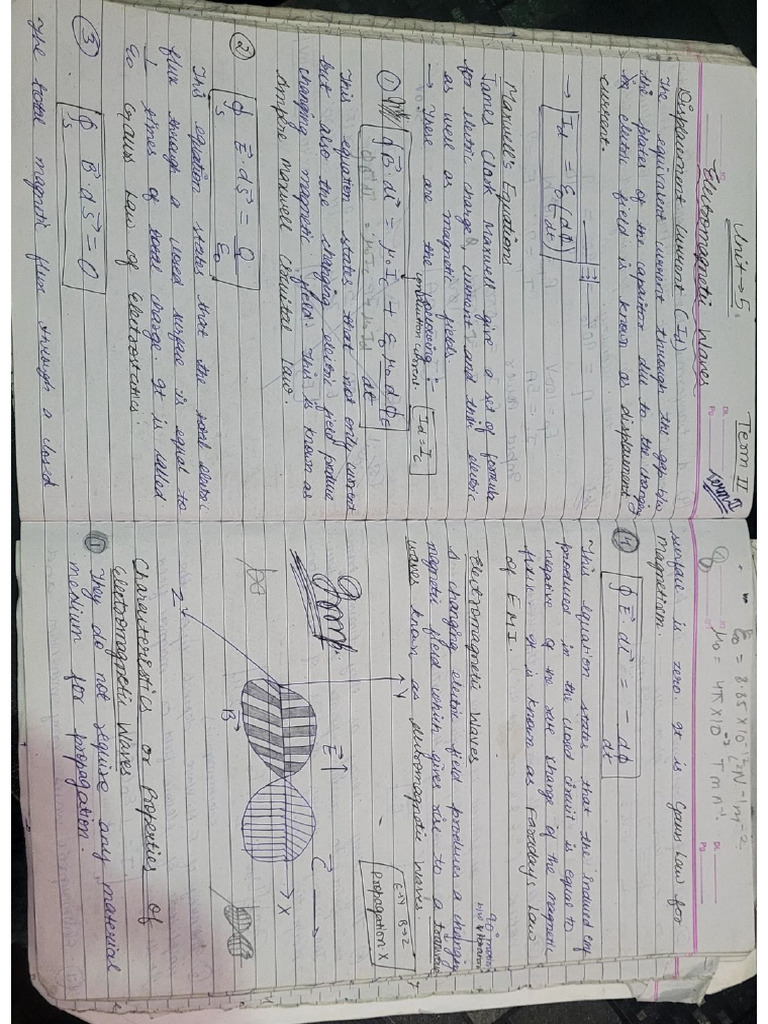 Unit → 5.
Term II
Electromagnetic Waves
Displacement Current (Id)
The equivalent current through the gap b/w
the plates of the capacitor due to the changing
in electric field is known as displacement
current.
→ Id = ε0 (dϕ/dt)
Maxwell's Equations
James Clark Maxwell give a set of formula
for electric charge, current and their electric
as well as magnetic fields.
→ These are the following :-
conduction current.
Id = Ic
① ∮ B⃗·dl⃗ = μ0 Ic + ε0 μ0 dϕE/dt
This equation states that not only current
but also the changing electric field produce
changing magnetic field. This is known as
Ampere Maxwell Circuital Law.
② ∮s E⃗·ds⃗ = Q/ε0
This equation states that the total electric
flux through a closed surface is equal to
1/ε0 times of total charge. It is called
Gauss Law of Electrostatics.
③ ∮s B⃗·ds⃗ = 0
The total magnetic flux through a closed
ε0 = 8.85 × 10⁻¹² N⁻¹ m⁻²
μ0 = 4π × 10⁻⁷ T m A⁻¹
surface is zero. It is Gauss Law for
magnetism.
④ ∮ E⃗·dl⃗ = - dϕ/dt
This equation states that the induced emf
produced in the closed circuit is equal to
negative of the rate change of the magnetic
flux. It is known as Faradays Law
of EMI.
Electromagnetic Waves
A changing electric field produces a changing
magnetic field which gives rise to a transverse
waves known as electromagnetic waves
E→Y B→Z
propagation X
Y
E⃗ ↑
C⃗ →
X
B⃗
Z
Characteristics or Properties of
Electromagnetic Waves
① They do not require any material
medium for propagation.